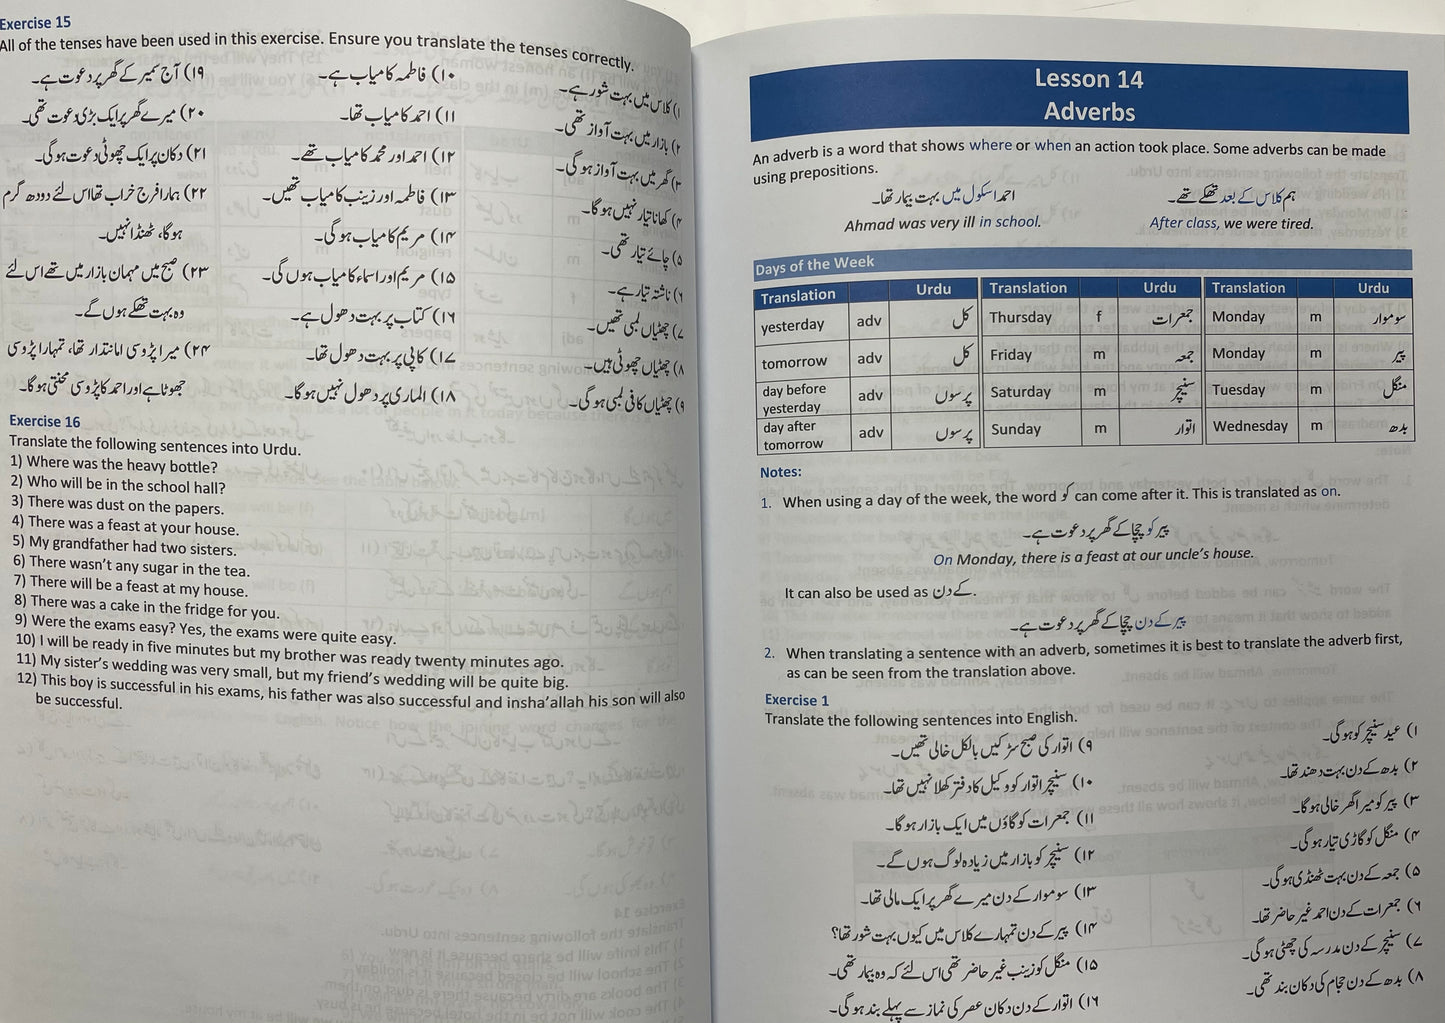 Exercise 15
All of the tenses have been used in this exercise. Ensure you translate the tenses correctly.
۱) کلاس میں بہت شور ہے۔
۲) بازار میں بہت آواز تھی۔
۳) گھر میں بہت آواز ہوگی۔
۴) کھانا تیار نہیں ہوگا۔
۵) چائے تیار تھی۔
۶) ناشتہ تیار ہے۔
۷) چھٹیاں لمبی تھیں۔
۸) چھٹیاں چھوٹی ہیں۔
۹) چھٹیاں کافی لمبی ہوگی۔
۱۰) فاطمہ کامیاب ہے۔
۱۱) احمد کامیاب تھا۔
۱۲) احمد اور محمد کامیاب تھے۔
۱۳) فاطمہ اور زینب کامیاب تھیں۔
۱۴) مریم کامیاب ہوگی۔
۱۵) مریم اور اسماء کامیاب ہوں گی۔
۱۶) کتاب پر بہت دھول ہے۔
۱۷) کاپی پر بہت دھول تھا۔
۱۸) الماری پر دھول نہیں ہوگا۔
۱۹) آج سمیر کے گھر پر دعوت ہے۔
۲۰) میرے گھر پر ایک بڑی دعوت تھی۔
۲۱) دکان پر ایک چھوٹی دعوت ہوگی۔
۲۲) ہمارا فرج خراب تھا اس لئے دودھ گرم
ہوگا، ٹھنڈا نہیں۔
۲۳) صبح میں مہمان بازار میں تھے اس لئے
وہ بہت تھکے ہوں گے۔
۲۴) میرا پڑوسی امانتدار تھا، تمہارا پڑوسی
جھوٹا ہے اور احمد کا پڑوسی محنتی ہوگا۔
Exercise 16
Translate the following sentences into Urdu.
1) Where was the heavy bottle?
2) Who will be in the school hall?
3) There was dust on the papers.
4) There was a feast at your house.
5) My grandfather had two sisters.
6) There wasn't any sugar in the tea.
7) There will be a feast at my house.
8) There was a cake in the fridge for you.
9) Were the exams easy? Yes, the exams were quite easy.
10) I will be ready in five minutes but my brother was ready twenty minutes ago.
11) My sister's wedding was very small, but my friend's wedding will be quite big.
12) This boy is successful in his exams, his father was also successful and insha'allah his son will also
be successful.
Lesson 14
Adverbs
An adverb is a word that shows where or when an action took place. Some adverbs can be made
using prepositions.
احمد اسکول میں بہت بیمار تھا۔
Ahmad was very ill in school.
ہم کلاس کے بعد تھکے تھے۔
After class, we were tired.
Days of the Week
Translation Urdu Translation Urdu Translation Urdu
yesterday adv کل Thursday f جمعرات Monday m سوموار
tomorrow adv کل Friday m جمعہ Monday m پیر
day before yesterday adv پرسوں Saturday m سنیچر Tuesday m منگل
day after tomorrow adv پرسوں Sunday m اتوار Wednesday m بدھ
Notes:
1. When using a day of the week, the word کو can come after it. This is translated as on.
پیر کو چچا کے گھر پر دعوت ہے۔
On Monday, there is a feast at our uncle's house.
It can also be used as کے دن.
پیر کے دن چچا کے گھر پر دعوت ہے۔
2. When translating a sentence with an adverb, sometimes it is best to translate the adverb first,
as can be seen from the translation above.
Exercise 1
Translate the following sentences into English.
۱) عید سنیچر کو ہوگی۔
۲) بدھ کے دن بہت دھند تھا۔
۳) پیر کو میرا گھر خالی ہوگا۔
۴) منگل کو گاڑی تیار ہوگی۔
۵) جمعہ کے دن بہت ٹھنڈی ہوگی۔
۶) جمعرات کے دن احمد غیر حاضر تھا۔
۷) سنیچر کے دن مدرسہ کی چھٹی ہوگی۔
۸) بدھ کے دن حجام کی دکان بند تھی۔
۹) اتوار کی صبح سڑکیں بالکل خالی تھیں۔
۱۰) سنیچر اتوار کو وکیل کا دفتر کھلا نہیں تھا۔
۱۱) جمعرات کو گاؤں میں ایک بازار ہوگا۔
۱۲) سنیچر کو بازار میں زیادہ لوگ ہوں گے۔
۱۳) سوموار کے دن میرے گھر پر ایک مالی تھا۔
۱۴) پیر کے دن تمہارے کلاس میں کیوں بہت شور تھا؟
۱۵) منگل کو زینب غیر حاضر تھی اس لئے کہ وہ بیمار تھی۔
۱۶) اتوار کے دن دکان عصر کی نماز سے پہلے بند ہوگی۔